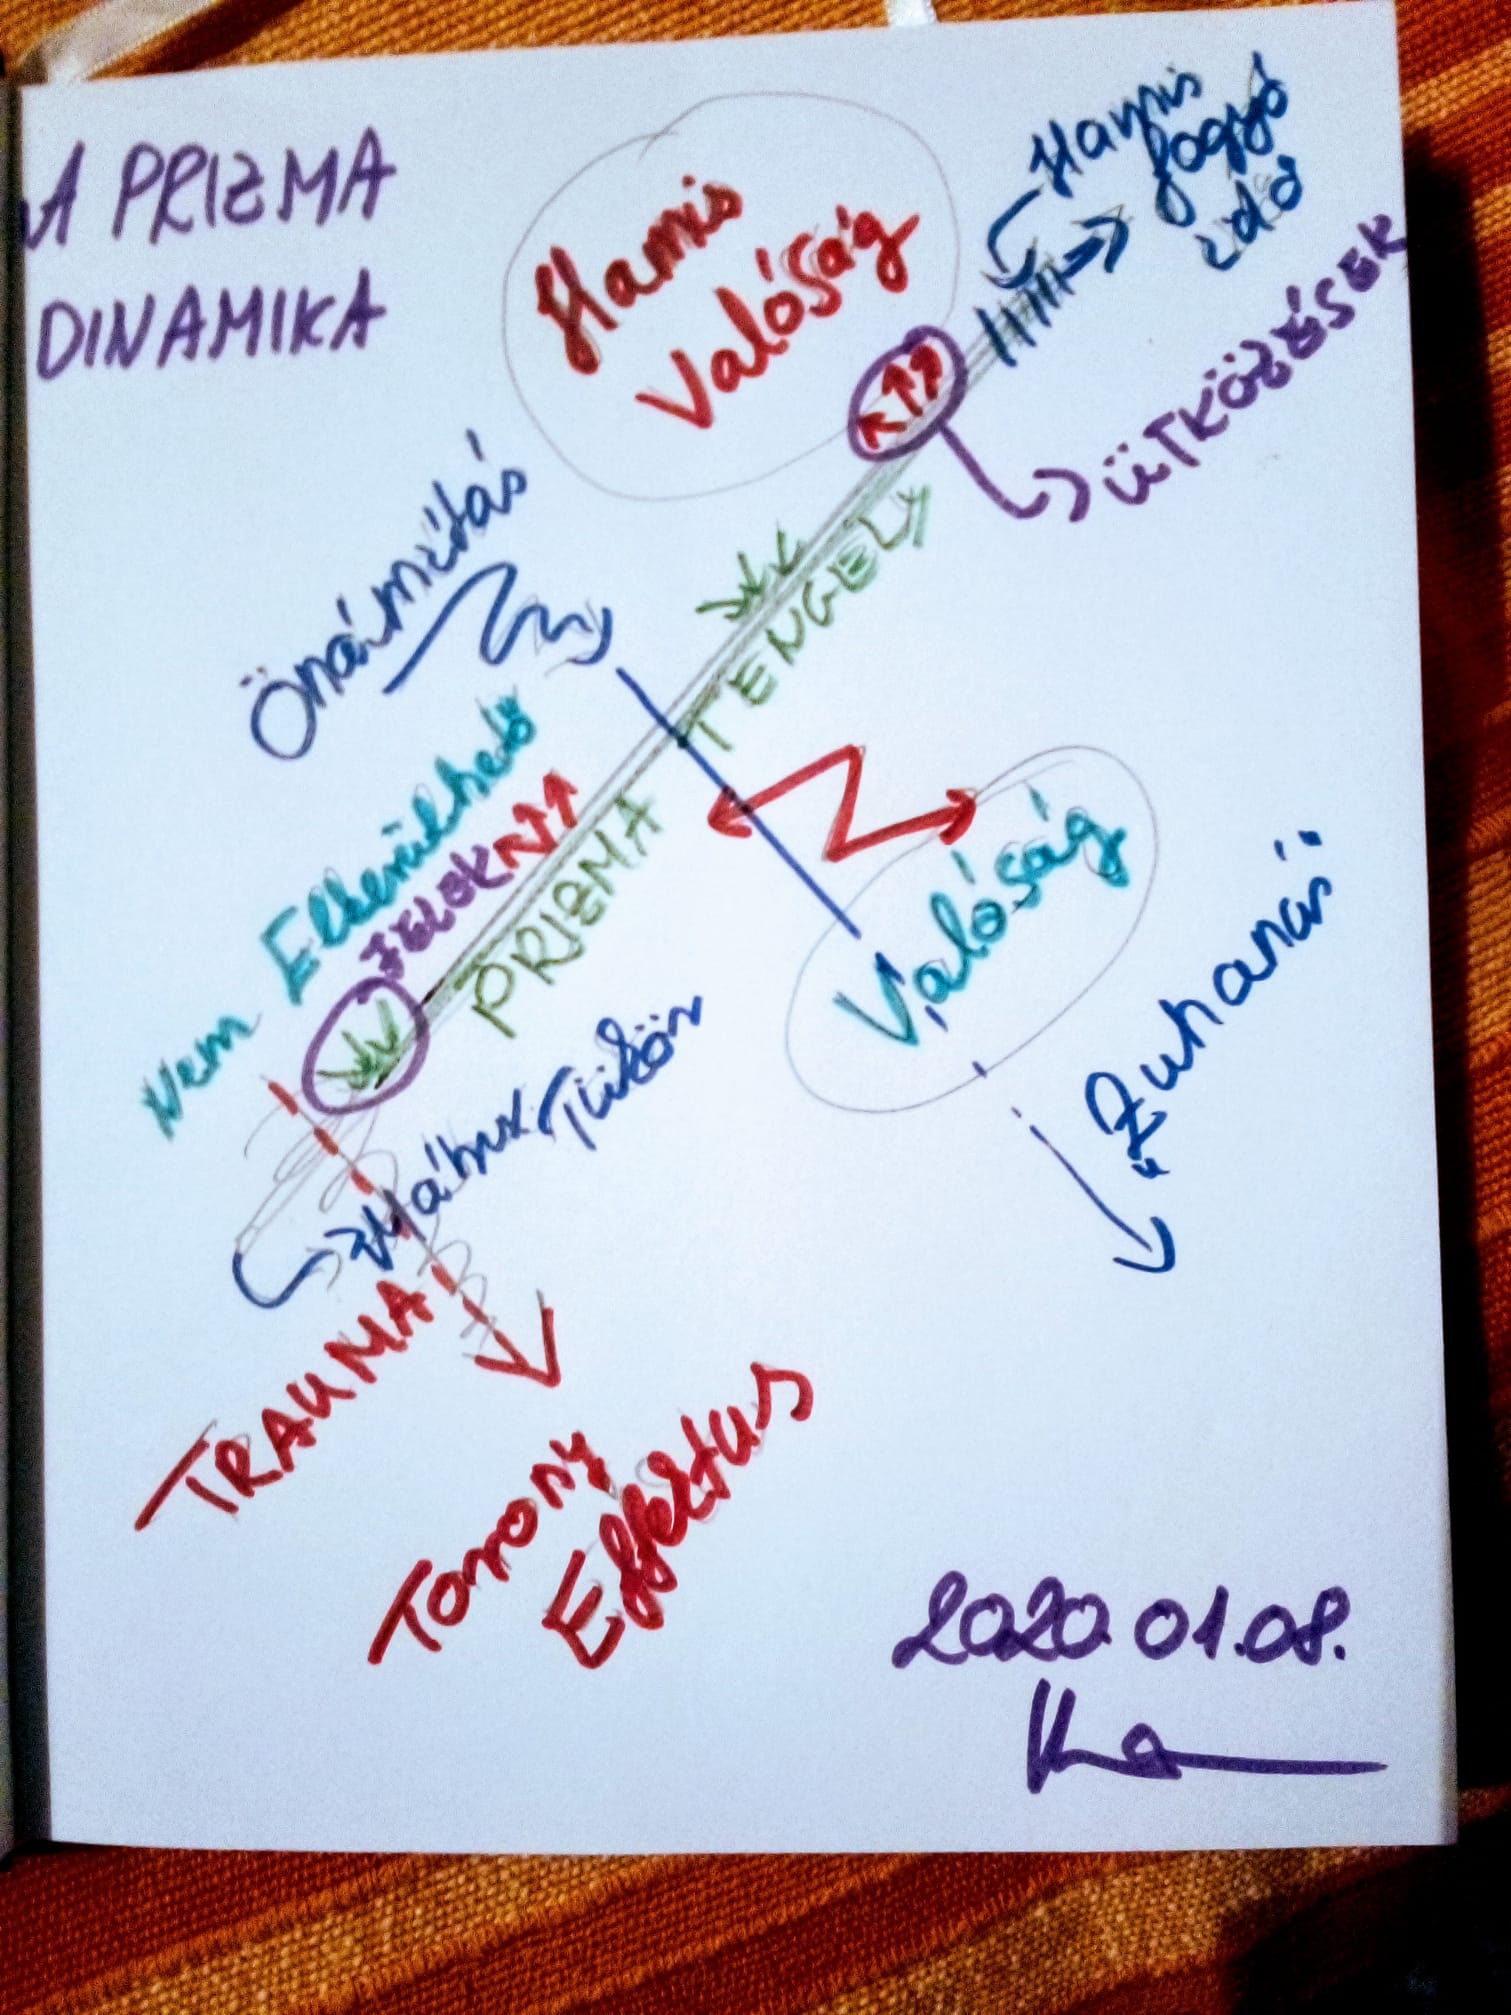 A PRIZMA
DINAMIKA
Hamis
Valóság
Hamis
fogyó
idő
ÜTKÖZÉSEK
Önámítás
TENGELY
Nem Elkerülhető
JELEK
PRIZMA
Valóság
Zuhanás
Tükör
TRAUMA
Torony
Effektus
2020.01.08.